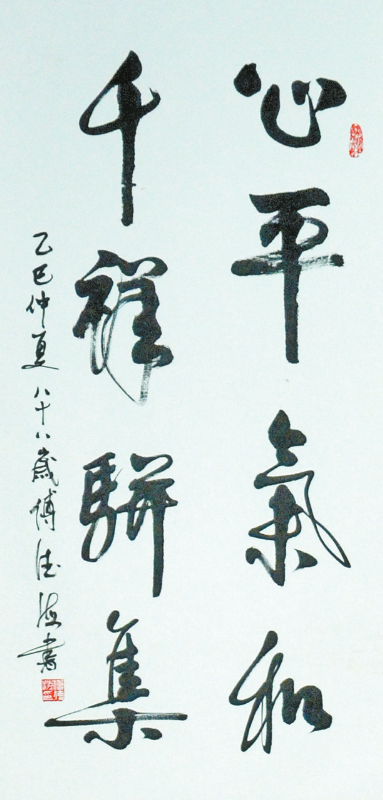 心平氣和
千祥駢集
乙巳仲夏八十八歲傅德海書